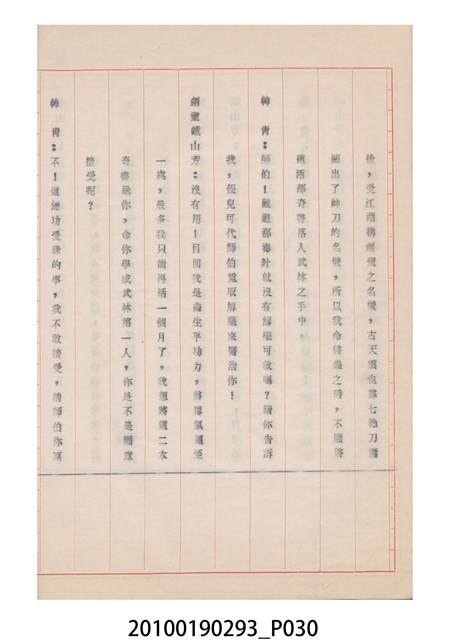 後，受江湖稱劍聖之名號，古天震也靠七絕刀書
闖出了神刀的名號，所以我命將盡之時，不願將
這兩部奇書落入武林之手中。
韓　青：師伯！難道那毒針就沒有解藥可救嗎？請你告訴
我，侄兒可代師伯電取解藥來醫治你！
劍聖鐵山芳：沒有用！目前我是盡生平功力，將毒氣逼至
一處，最多我只能再活一個月了，我想將這二本
奇書給你，命你學成武林第一人，你是不是願意
接受呢？
韓　青：不！這無功受祿的事，我不敢接受，請師伯你原
20100190293_P030